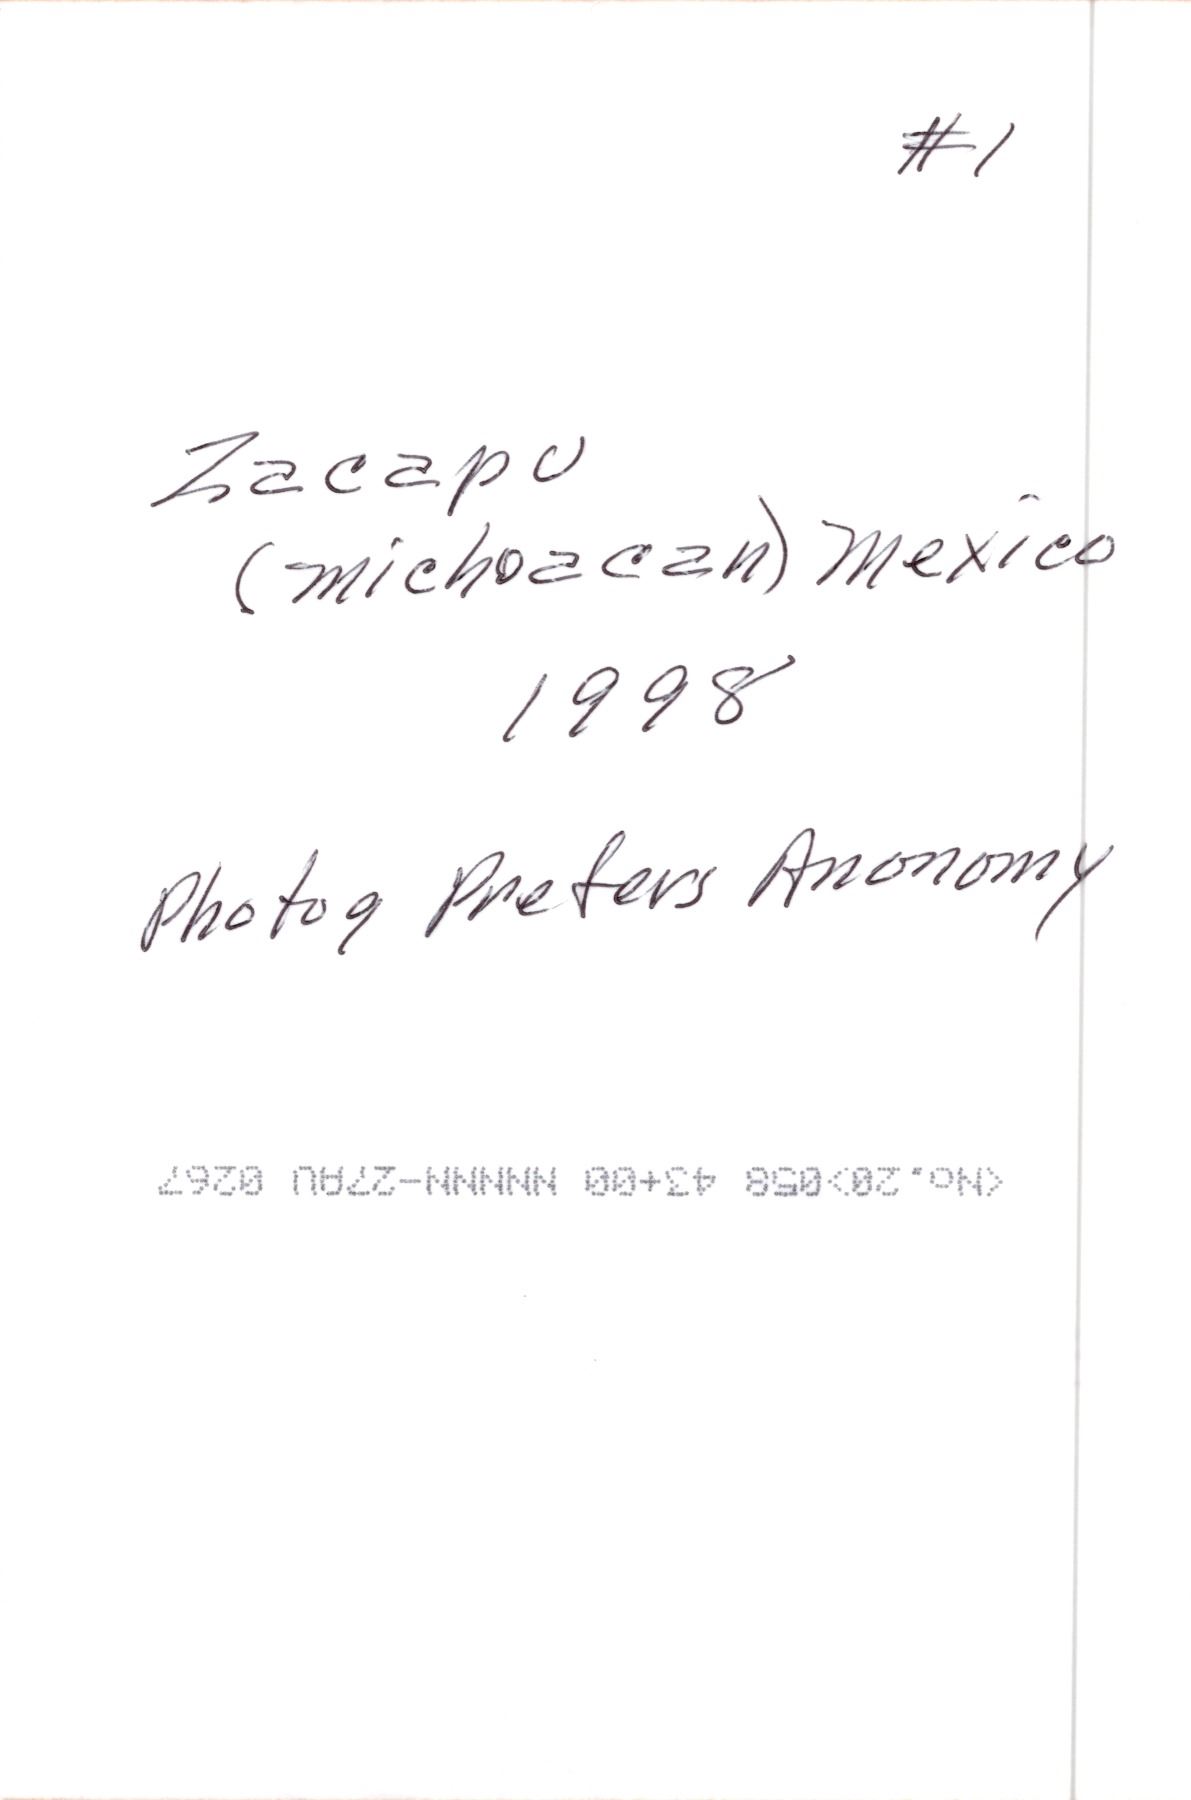 #1
Zacapu
(michoacan) Mexico
1998
Photog Prefers Anonomy
<No.20>058 43+00 NNNNN-Z7AU 0267